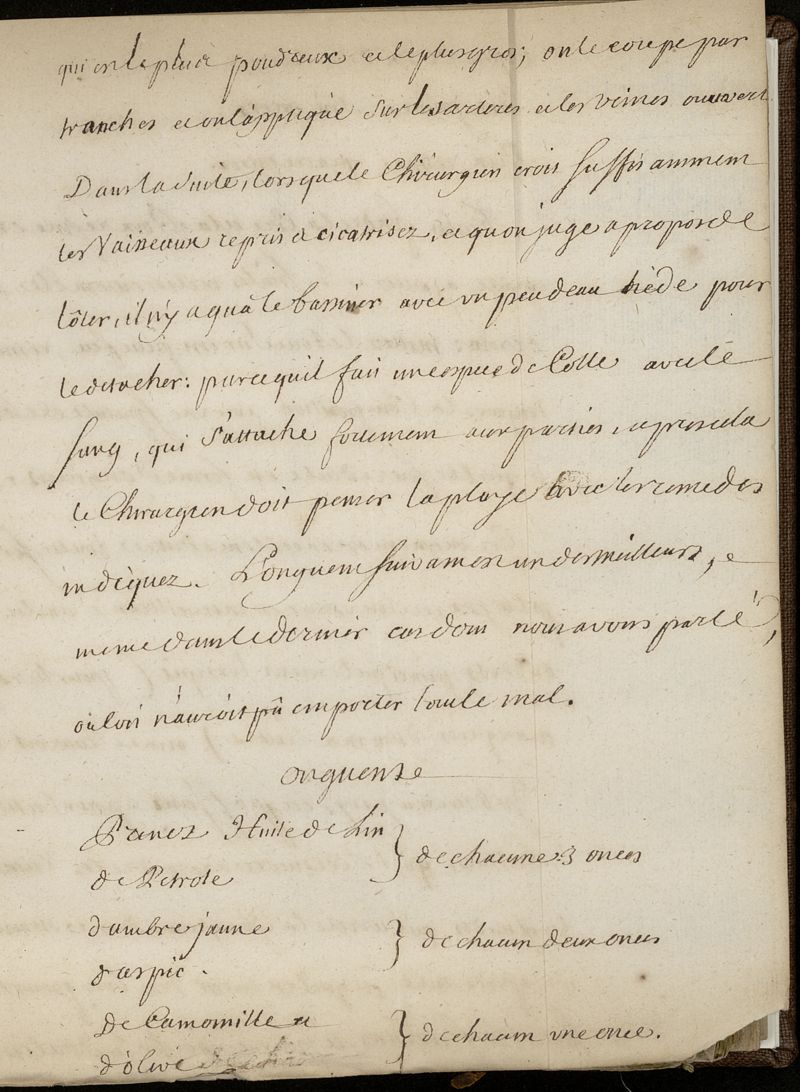 qui est le plus poudreux et le plus gros; on le coupe par
tranches et on l'applique sur les arteres et les veines ouvert
Dans la suite, lorsque le Chirurgien croit suffisamment
les Vaisseaux repris et cicatrisez, et qu'on juge a propos de
l'ôter, il n'y a qu'à le bassiner avec un peu d'eau tiède pour
le detacher: parcequ'il fait une espece de Colle avec le
sang, qui s'attache fortement aux parties, apres cela
le Chirurgien doit penser la playe avec les remedes
indiquez. L'onguent suivant est un des meilleurs, e
meme dans le dernier cas dont nous avons parlé,
où l'on n'auroit pû emporter tout le mal.
onguent
Prenez Huile de Lin
de Petrole } de chacune 3 onces
d'ambre jaune
d'aspic. } de chacun deux onces
de Camomille et
d'olive } de chacun une once.